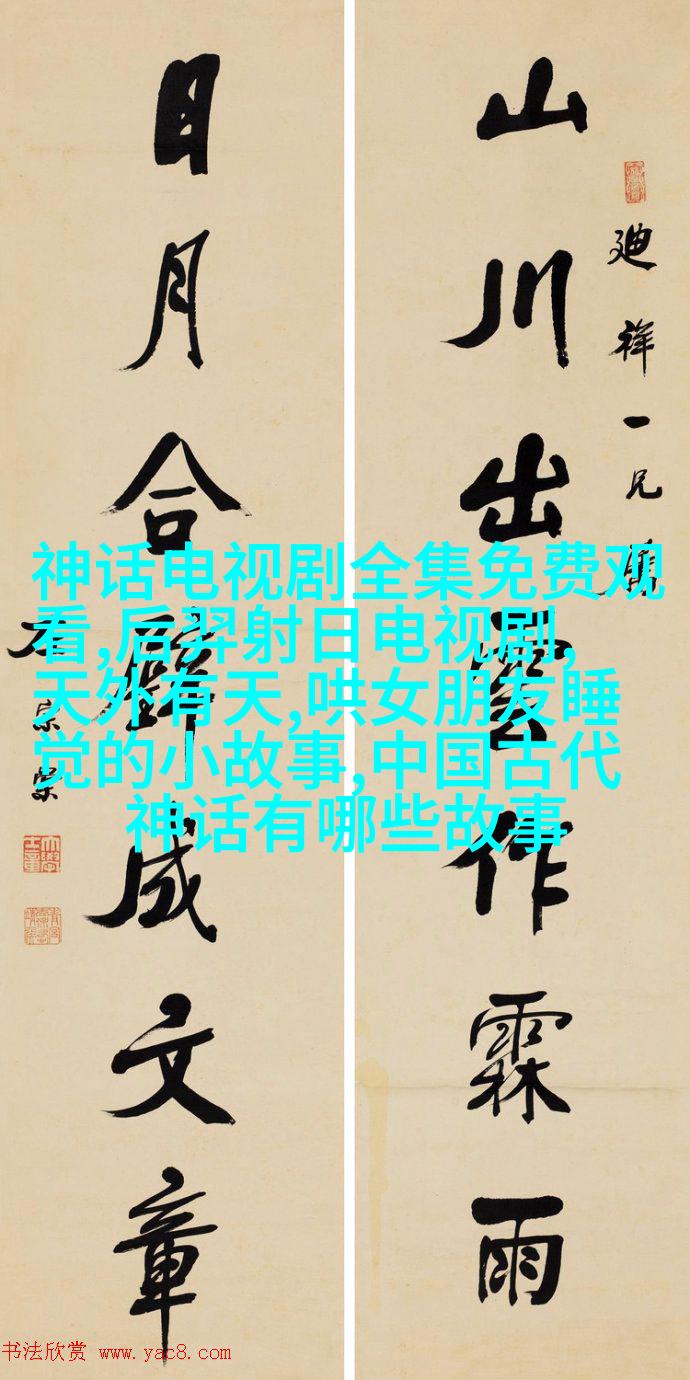 廸祥一兄屬
山川出雲作霖雨
日月合璧成文章
左宗棠
神话电视剧全集免费观
看,后羿射日电视剧,
天外有天,哄女朋友睡
觉的小故事,中国古代
神话有哪些故事
书法欣赏 www.yac8.com